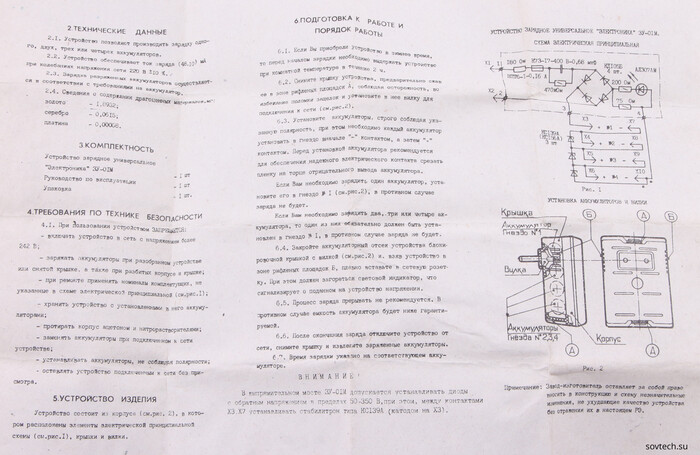 2.ТЕХНИЧЕСКИЕ ДАННЫЕ
2.1. Устройство позволяет производить зарядку одно-
го, двух, трех или четырех аккумуляторов.
2.2. Устройство обеспечивает ток заряда мА
при колебаниях напряжения сети 220 В ±10 %.
2.3. Зарядка разряженных аккумуляторов осуществляет-
ся в соответствии с требованиями на аккумулятор.
2.4. Сведения о содержании драгоценных материалов,
золото
серебро - 0,0615;
платина
3.КОМПЛЕКТНОСТЬ
Устройство зарядное универсальное
"Электроника" ЗУ-01М - 1 шт
Руководство по эксплуатации - 1 шт
Упаковка - 1 шт
4.ТРЕБОВАНИЯ ПО ТЕХНИКЕ БЕЗОПАСНОСТИ
4.1. При пользовании устройством ЗАПРЕЩАЕТСЯ:
- включать устройство в сеть с напряжением более
242 В;
- заряжать аккумуляторы при разобранном устройстве
или снятой крышке, а также при разбитых корпусе и крышке;
- при ремонте применять номиналы комплектующих, не
указанные в схеме электрической принципиальной (см.рис.1);
- хранить устройство с установленными в него аккуму-
ляторами;
- протирать корпус ацетоном и нитрорастворителями;
- заменять аккумуляторы при подключенном к сети
устройстве;
- устанавливать аккумуляторы, не соблюдая полярности;
- оставлять устройство подключенным к сети без при-
смотра.
5.УСТРОЙСТВО ИЗДЕЛИЯ
Устройство состоит из корпуса (см.рис. 2), в кото-
ром расположены элементы электрической принципиальной
схемы (см.рис.1), крышки и вилки.
6.ПОДГОТОВКА К РАБОТЕ И
ПОРЯДОК РАБОТЫ
6.1. Если Вы приобрели устройство в зимнее время,
то перед началом зарядки необходимо выдержать устройство
при комнатной температуре в течение 2 ч.
6.2. Снимите крышку устройства, предварительно сжав
ее в зоне рифленых площадок А, соблюдая осторожность, во
избежание поломки зацепов и установите в нее вилку для
подключения к сети (см.рис.2).
6.3. Установите аккумуляторы, строго соблюдая ука-
занную полярность, при этом необходимо каждый аккумулятор
установить в гнездо вначале "-" контактом, а затем "+"
контактом. Перед установкой аккумулятора рекомендуется
для обеспечения надежного электрического контакта срезать
пленку на торце отрицательного вывода аккумулятора.
Если Вам необходимо зарядить один аккумулятор, уста-
новите его в гнездо № 1 (см.рис.2), в противном случае
заряда не будет.
Если Вам необходимо зарядить два, три или четыре ак-
кумулятора, то один из них обязательно должен быть уста-
новлен в гнездо № 1, в противном случае заряда не будет.
6.4. Закройте аккумуляторный отсек устройства блоки-
ровочной крышкой с вилкой (см.рис.2) и, взяв устройство в
зоне рифленых площадок Б, плавно вставьте в сетевую розет-
ку. При этом должен загореться световой индикатор, что
сигнализирует о подаче на устройство напряжения.
6.5. Процесс заряда прерывать не рекомендуется. В
противном случае емкость аккумулятора будет ниже гаранти-
руемой.
6.6. После окончания заряда отключите устройство от
сети, снимите крышку и извлеките заряженные аккумуляторы.
6.7. Время зарядки указано на соответствующем акку-
муляторе.
ВНИМАНИЕ
В выпрямительном мосте ЗУ-01М допускается устанавливать диоды
с обратным напряжением в пределах 50-350 В, при этом, между контактами
Х3,Х7 устанавливать стабилитрон типа КС139А (катодом на Х3).
УСТРОЙСТВО ЗАРЯДНОЕ УНИВЕРСАЛЬНОЕ "ЭЛЕКТРОНИКА" ЗУ-01М.
СХЕМА ЭЛЕКТРИЧЕСКАЯ ПРИНЦИПИАЛЬНАЯ
Рис. 1
УСТАНОВКА АККУМУЛЯТОРОВ И ВИЛКИ
Крышка
Аккумулятор
Гнездо №1
Вилка
Аккумуляторы
Гнезда №2,3,4
Корпус
А
Б
Рис. 2
Примечание: Завод-изготовитель оставляет за собой право
вносить в конструкцию и схему незначительные
изменения, не ухудшающие качество устройства
без отражения их в настоящем РЭ.
sovtech.su